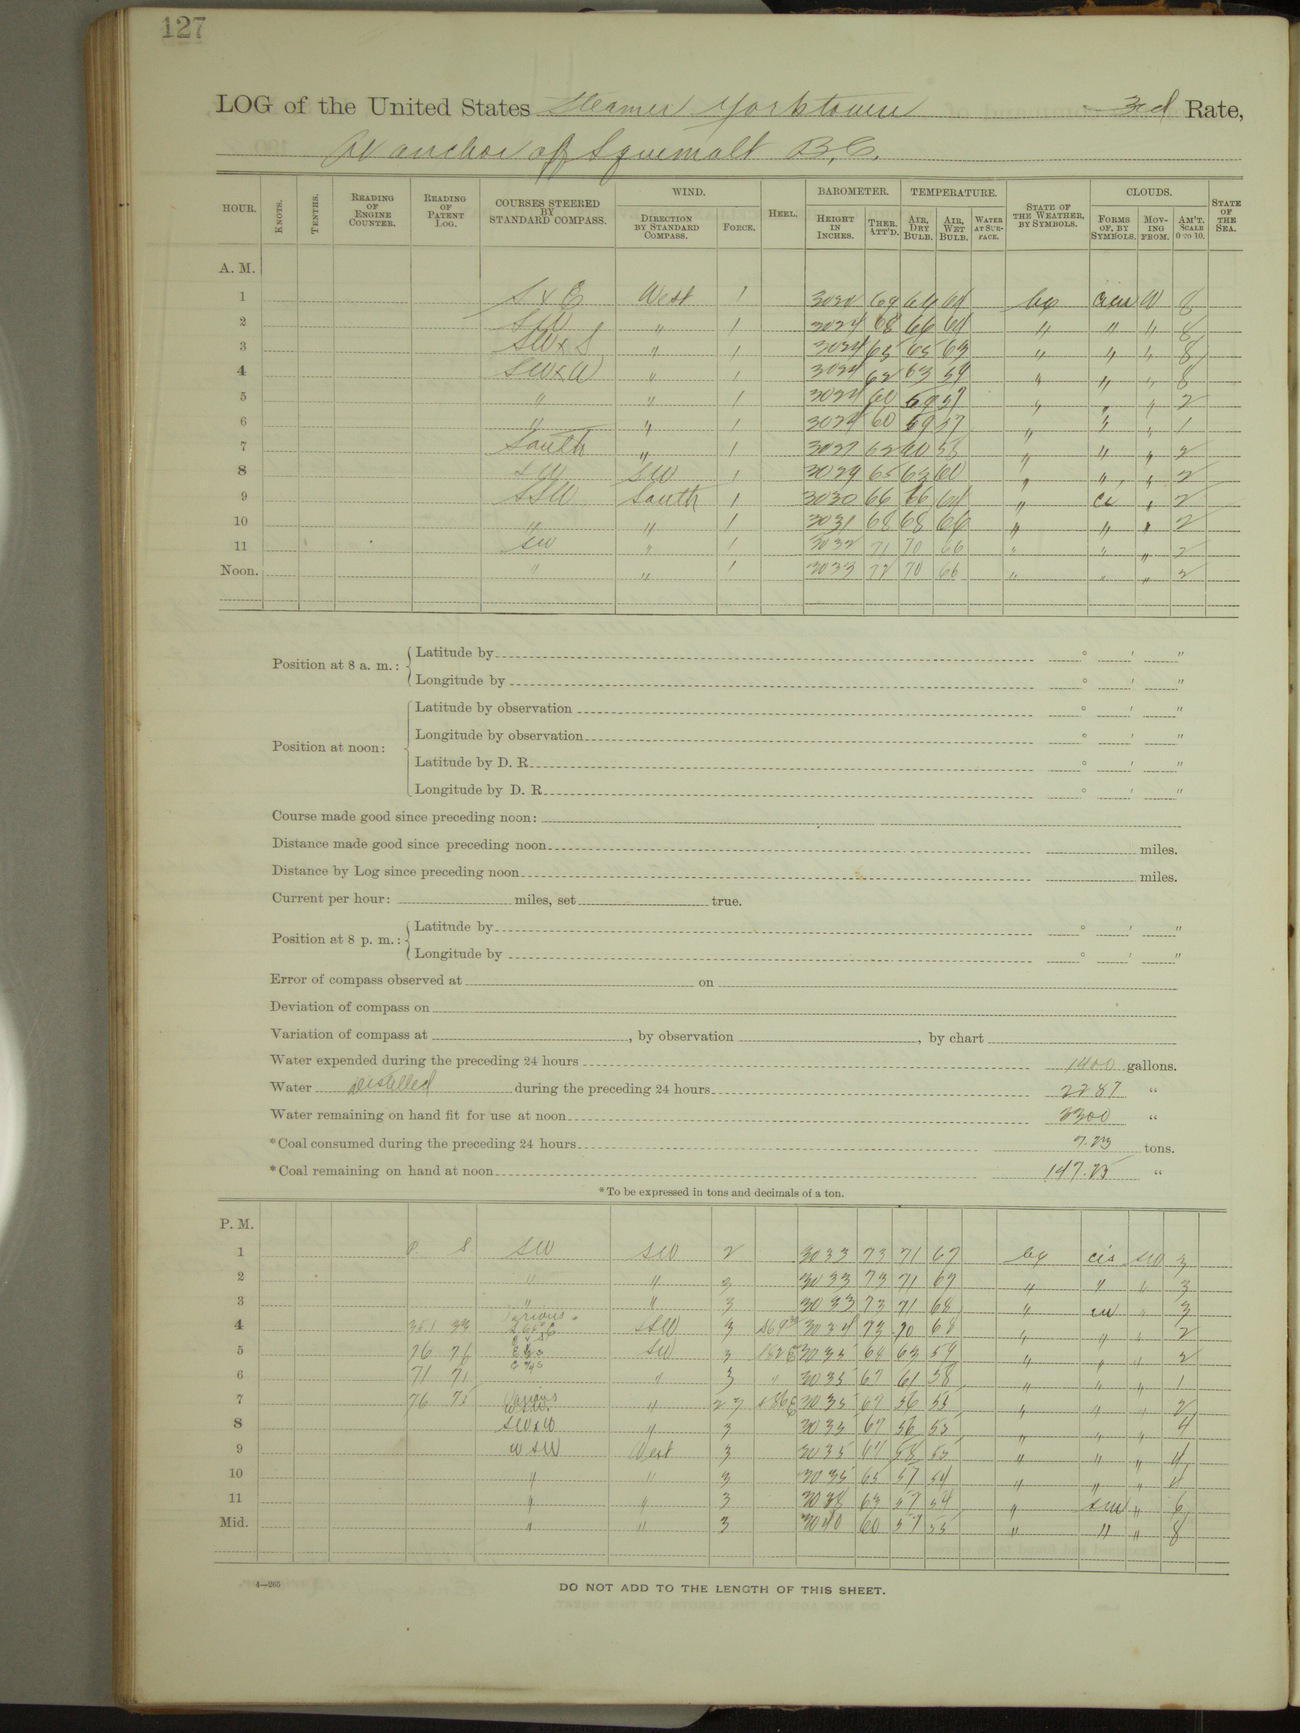 127
LOG of the United States Steamer Yorktown 3rd Rate,
At anchor off Esquimalt B.C.
HOUR. KNOTS. TENTHS. READING OF ENGINE COUNTER. READING OF PATENT LOG. COURSES STEERED BY STANDARD COMPASS. WIND. DIRECTION BY STANDARD COMPASS. FORCE. HEEL. BAROMETER. HEIGHT IN INCHES. THER. ATT'D. TEMPERATURE. AIR, DRY BULB. AIR, WET BULB. WATER AT SURFACE. STATE OF THE WEATHER, BY SYMBOLS. CLOUDS. FORMS OF, BY SYMBOLS. MOVING FROM. AM'T. SCALE 0 TO 10. STATE OF THE SEA.
A. M.
1 S x E West 1 3024 69 66 64 bc W 8
2 SW " 1 3024 68 66 64 " " " 8
3 SW x S " 1 3024 65 65 63 " " " 8
4 SW x W " 1 3024 62 63 59 " " " 8
5 " " 1 3024 60 59 57 " " " 2
6 " " 1 3024 60 59 57 " " " 1
7 South " 1 3027 62 60 58 " " " 2
8 SW SW 1 3029 65 63 60 " " " 2
9 SSW South 1 3030 66 66 64 " Ci " 2
10 " " 1 3031 68 68 66 " " " 2
11 SW " 1 3032 71 70 66 " " " 2
Noon. " " 1 3033 72 70 66 " " " 2
Position at 8 a. m.: Latitude by ° ' "
Longitude by ° ' "
Position at noon: Latitude by observation ° ' "
Longitude by observation ° ' "
Latitude by D. R. ° ' "
Longitude by D. R. ° ' "
Course made good since preceding noon:
Distance made good since preceding noon miles.
Distance by Log since preceding noon miles.
Current per hour: miles, set true.
Position at 8 p. m.: Latitude by ° ' "
Longitude by ° ' "
Error of compass observed at on
Deviation of compass on
Variation of compass at , by observation , by chart
Water expended during the preceding 24 hours 1400 gallons.
Water Distilled during the preceding 24 hours 2287 "
Water remaining on hand fit for use at noon 3300 "
*Coal consumed during the preceding 24 hours 7.23 tons.
*Coal remaining on hand at noon 147.25 "
*To be expressed in tons and decimals of a ton.
P. M.
1 P. S. SW SW 2 3033 73 71 67 bc SW 3
2 " " 3 3033 73 71 67 " " " 3
3 " " 3 3033 73 71 68 " cu " 3
4 33 Various SSW 3 3034 73 70 68 " " " 2
5 76 76 SW 3 3035 68 63 59 " " " 2
6 71 71 " 3 " 3035 67 61 58 " " " 1
7 76 75 Various " 23 3035 67 56 55 " " " 2
8 SW x W " 3 3035 67 56 55 " " " 4
9 WSW West 3 3035 64 58 55 " " " 4
10 " " 3 3035 65 57 54 " " " 4
11 " " 3 3038 63 57 54 " " 6
Mid. " " 3 3040 60 57 55 " " " 8
4—265
DO NOT ADD TO THE LENGTH OF THIS SHEET.